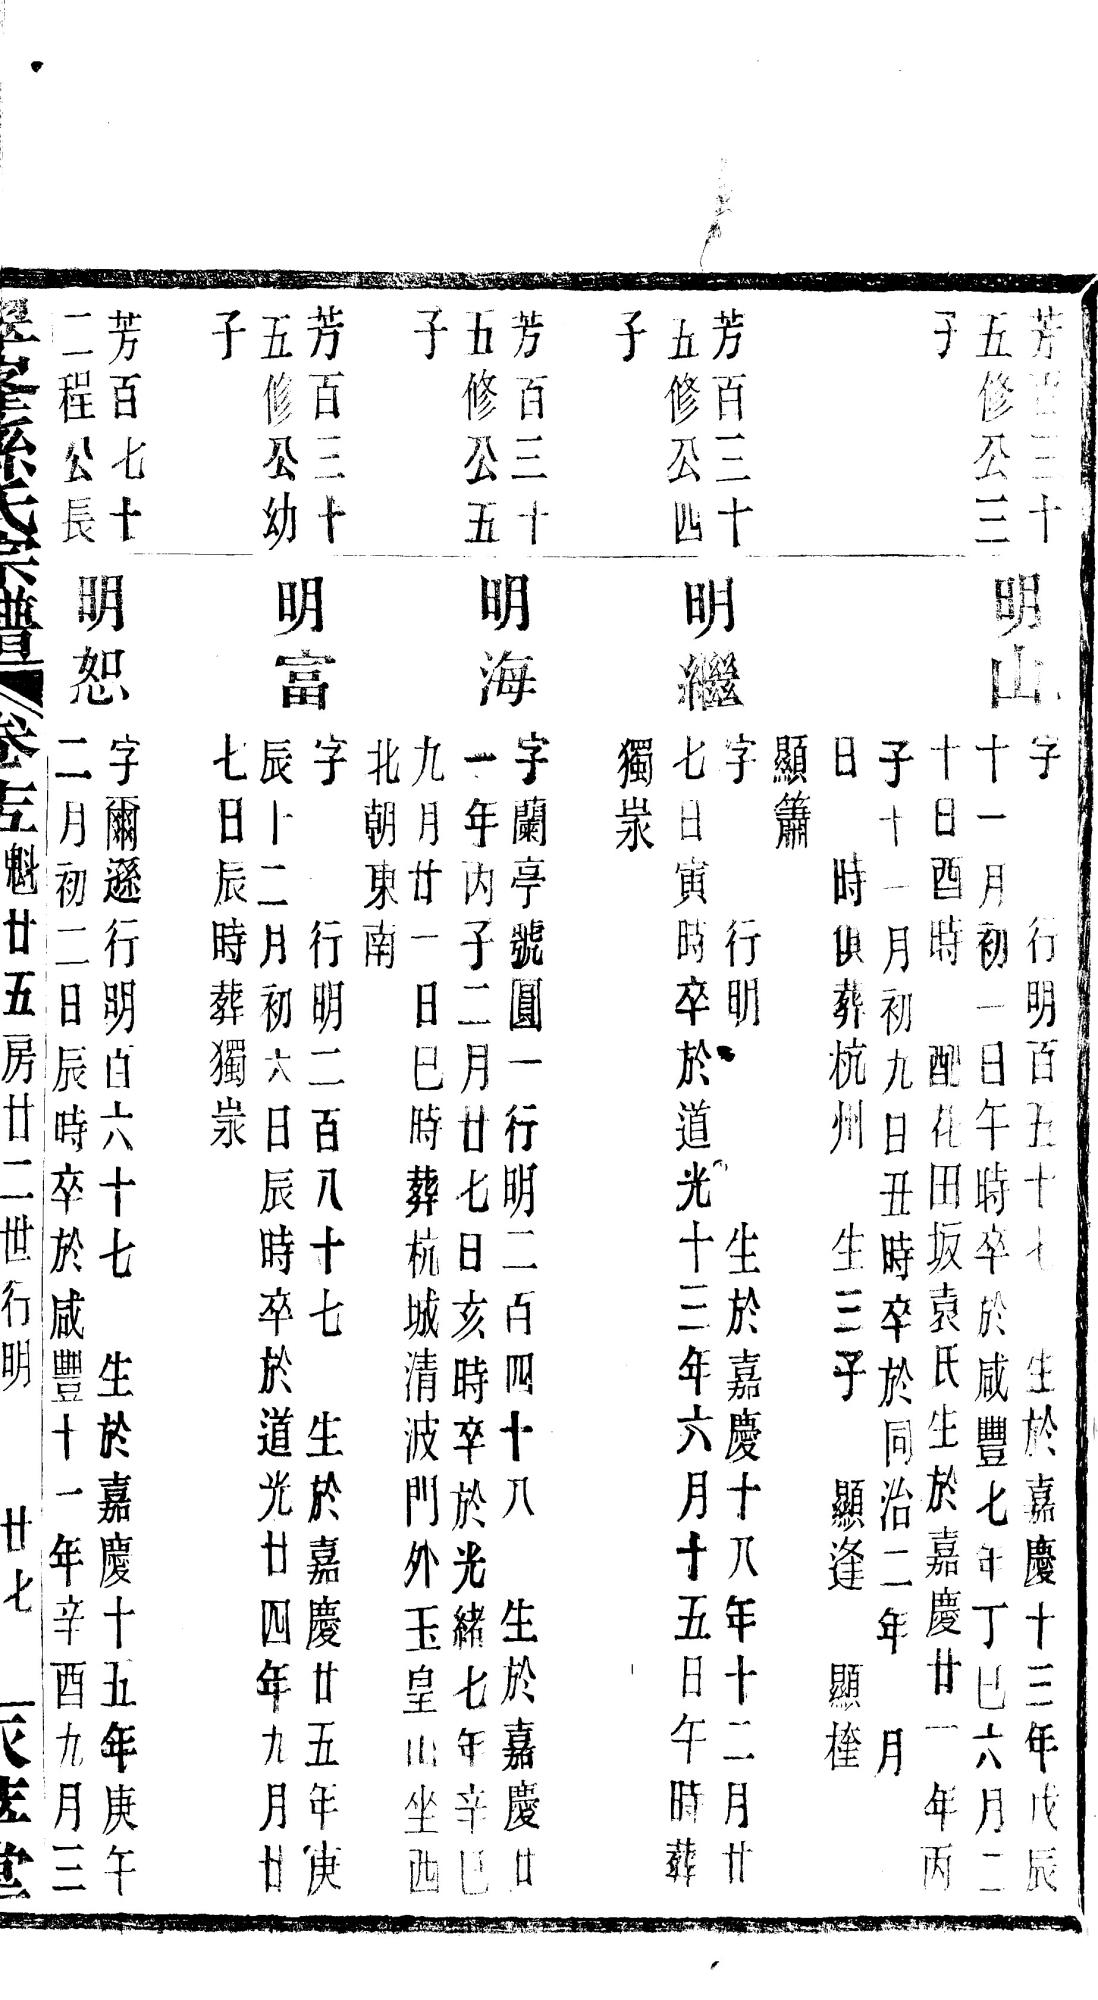 芳百三十
五修公三
子
明山
字　行明百五十七　生於嘉慶十三年戊辰
十一月初一日午時卒於咸豐七年丁巳六月二
十日酉時　配花田坂袁氏生於嘉慶廿一年丙
子十一月初九日丑時卒於同治二年　月
日　時俱葬杭州　生三子　顯逢　顯桂
顯簫
芳百三十
五修公四
子
明繼
字　行明　生於嘉慶十八年十二月廿
七日寅時卒於道光十三年六月十五日午時葬
獨峯
芳百三十
五修公五
子
明海
字蘭亭號圓一行明二百四十八　生於嘉慶廿
一年丙子二月廿七日亥時卒於光緒七年辛巳
九月廿一日巳時葬杭城清波門外玉皇山坐西
北朝東南
芳百三十
五修公幼
子
明富
字　行明二百八十七　生於嘉慶廿五年庚
辰十二月初六日辰時卒於道光廿四年九月廿
七日辰時葬獨峯
芳百七十
二程公長
明恕
字爾遜行明百六十七　生於嘉慶十五年庚午
二月初二日辰時卒於咸豐十一年辛酉九月三
孫氏宗譜　卷　魁廿五房廿二世行明　廿七　堂